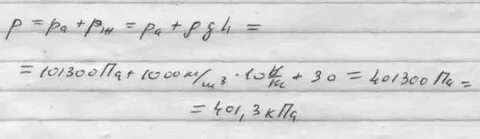 p = pₐ + pж = pₐ + ρgh =
= 101300 Па + 1000 кг/м³ · 10 Н/кг + 30 = 401300 Па =
= 401,3 кПа